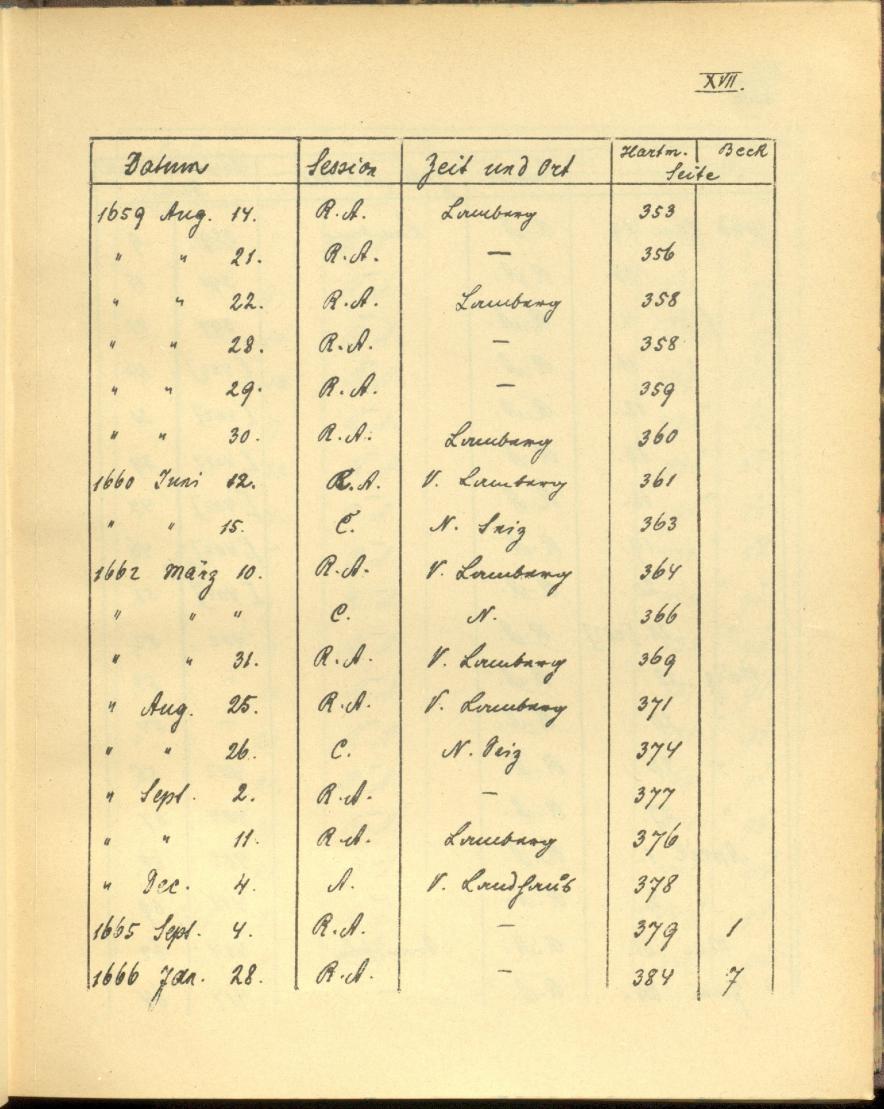 XVII.
Datum Session Zeit und Ort Hartm. Beck
Seite
1659 Aug. 14. R.A. Lamberg 353
" " 21. R.A. — 356
" " 22. R.A. Lamberg 358
" " 28. R.A. — 358
" " 29. R.A. — 359
" " 30. R.A. Lamberg 360
1660 Juni 12. R.A. V. Lamberg 361
" " 15. C. N. 363
1662 März 10. R.A. V. Lamberg 364
" " " C. N. 366
" " 31. R.A. V. Lamberg 369
" Aug. 25. R.A. V. Lamberg 371
" " 26. C. N. 374
" Sept. 2. R.A. — 377
" " 11. R.A. Lamberg 376
" Dec. 4. A. V. Landhaus 378
1665 Sept. 4. R.A. — 379 1
1666 Jan. 28. R.A. — 384 7